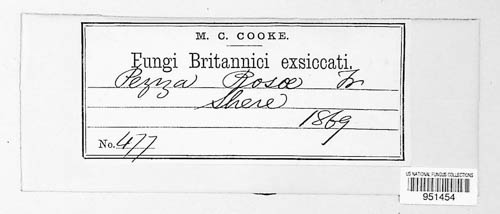 M. C. COOKE.
Fungi Britannici exsiccati.
Peziza Rosae Fr
Shere
1869
No. 477
US NATIONAL FUNGUS COLLECTIONS
951454